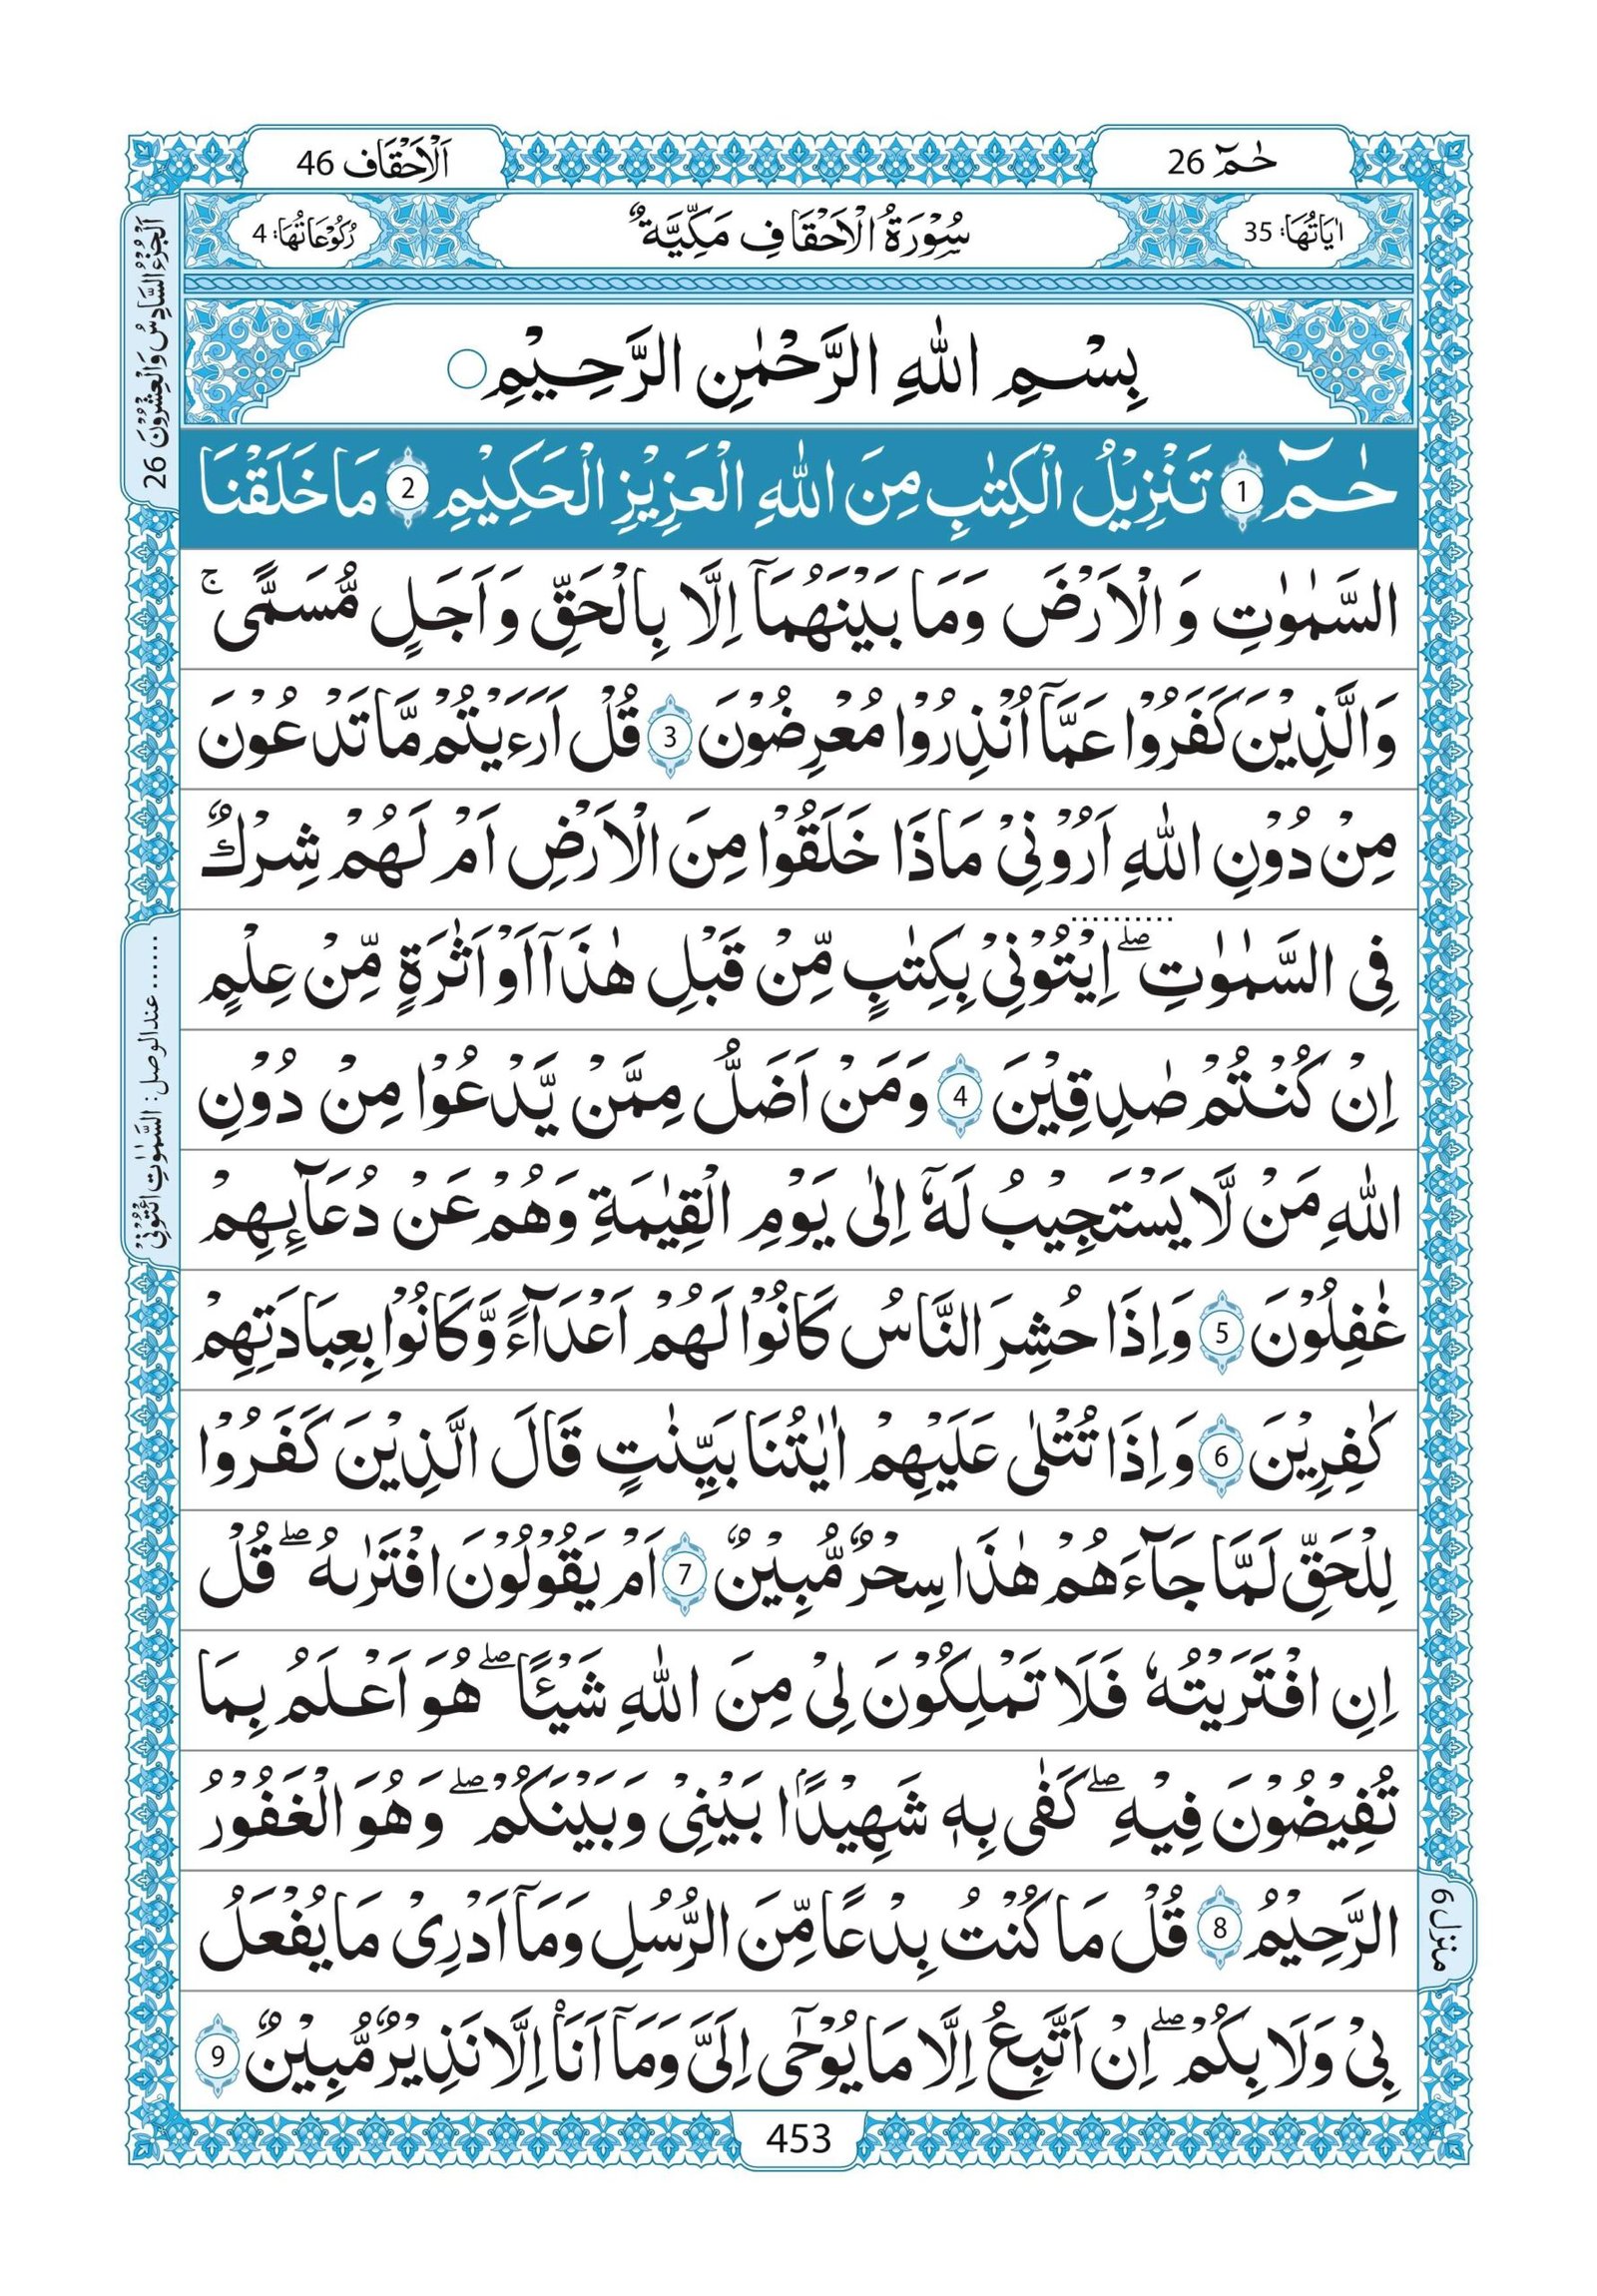 حٰمٓ 26
اَلْاَحْقَاف 46
اٰيَاتُهَا: 35
سُوْرَةُ الْاَحْقَافِ مَكِّيَّةٌ
رُكُوْعَاتُهَا: 4
اَلْجُزْءُ السَّادِسُ وَالْعِشْرُوْنَ 26
بِسْمِ اللّٰهِ الرَّحْمٰنِ الرَّحِيْمِ
حٰمٓ 1 تَنْزِيْلُ الْكِتٰبِ مِنَ اللّٰهِ الْعَزِيْزِ الْحَكِيْمِ 2 مَا خَلَقْنَا
السَّمٰوٰتِ وَ الْاَرْضَ وَمَا بَيْنَهُمَآ اِلَّا بِالْحَقِّ وَ اَجَلٍ مُّسَمًّى ۚ
وَالَّذِيْنَ كَفَرُوْا عَمَّآ اُنْذِرُوْا مُعْرِضُوْنَ 3 قُلْ اَرَءَيْتُمْ مَّا تَدْعُوْنَ
مِنْ دُوْنِ اللّٰهِ اَرُوْنِيْ مَاذَا خَلَقُوْا مِنَ الْاَرْضِ اَمْ لَهُمْ شِرْكٌ
فِى السَّمٰوٰتِ ۖ اِيْتُوْنِيْ بِكِتٰبٍ مِّنْ قَبْلِ هٰذَآ اَوْ اَثٰرَةٍ مِّنْ عِلْمٍ
اِنْ كُنْتُمْ صٰدِقِيْنَ 4 وَمَنْ اَضَلُّ مِمَّنْ يَّدْعُوْا مِنْ دُوْنِ
اللّٰهِ مَنْ لَّا يَسْتَجِيْبُ لَهٗٓ اِلٰى يَوْمِ الْقِيٰمَةِ وَهُمْ عَنْ دُعَآئِهِمْ
غٰفِلُوْنَ 5 وَاِذَا حُشِرَ النَّاسُ كَانُوْا لَهُمْ اَعْدَآءً وَّكَانُوْا بِعِبَادَتِهِمْ
كٰفِرِيْنَ 6 وَاِذَا تُتْلٰى عَلَيْهِمْ اٰيٰتُنَا بَيِّنٰتٍ قَالَ الَّذِيْنَ كَفَرُوْا
لِلْحَقِّ لَمَّا جَآءَهُمْ هٰذَا سِحْرٌ مُّبِيْنٌ 7 اَمْ يَقُوْلُوْنَ افْتَرٰىهُ ۖ قُلْ
اِنِ افْتَرَيْتُهٗ فَلَا تَمْلِكُوْنَ لِيْ مِنَ اللّٰهِ شَيْـًٔا ۖ هُوَ اَعْلَمُ بِمَا
تُفِيْضُوْنَ فِيْهِ ۖ كَفٰى بِهٖ شَهِيْدًۢا بَيْنِيْ وَبَيْنَكُمْ ۖ وَهُوَ الْغَفُوْرُ
الرَّحِيْمُ 8 قُلْ مَا كُنْتُ بِدْعًا مِّنَ الرُّسُلِ وَمَآ اَدْرِىْ مَا يُفْعَلُ
بِيْ وَلَا بِكُمْ ۖ اِنْ اَتَّبِعُ اِلَّا مَا يُوْحٰٓى اِلَيَّ وَمَآ اَنَا۠ اِلَّا نَذِيْرٌ مُّبِيْنٌ 9
...... عندالوصل: السَّمٰوٰتِ ائْتُوْنِيْ
منزل 6
453